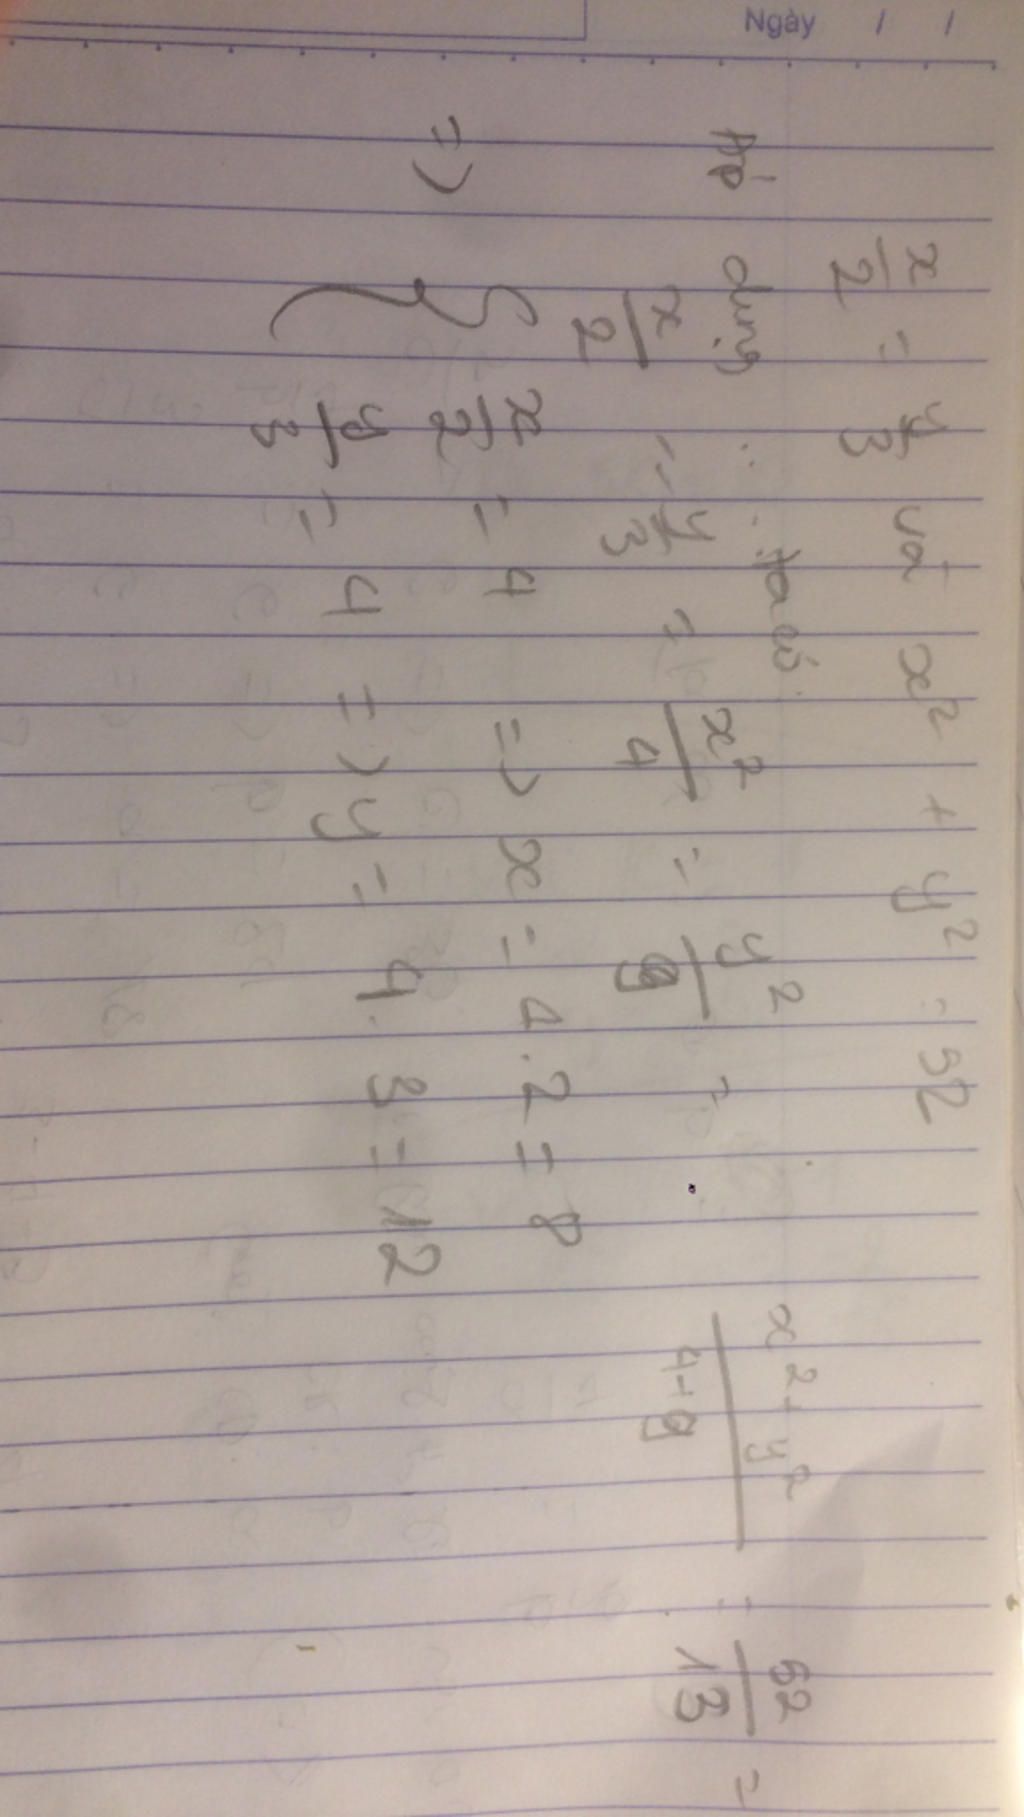 Ngày / /
x/2 = y/3 và x² + y² = 52
Áp dụng : ta có:
x/2 = y/3 = x²/4 = y²/9 = x²+y²/4+9 = 52/13 =
=> { x/2 = 4 => x = 4.2 = 8
y/3 = 4 => y = 4.3 = 12